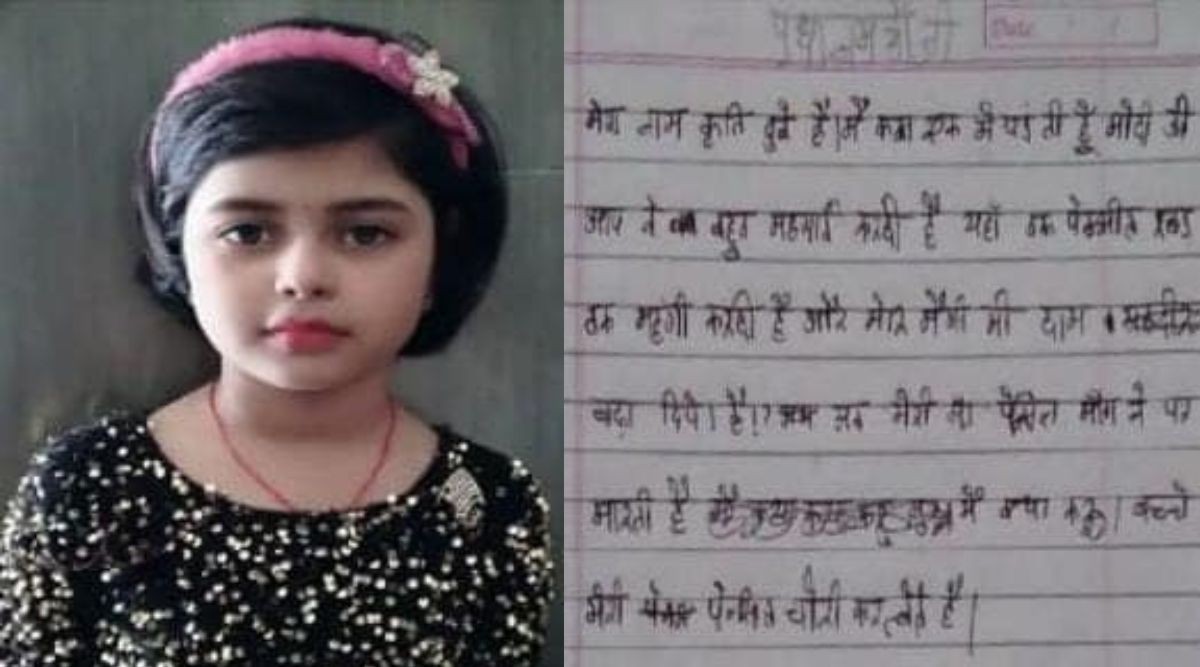 प्रधानमंत्री जी
Date
मेरा नाम कृति दुबे है। मैं कक्षा एक में पढ़ती हूँ मोदी जी
आप ने बहुत महगाई करदी है यहाँ तक पेन्सील रबड़
तक महंगी करदी है और मेरि मैगी की दाम
बढ़ा दिये। है। अब मेरी मा पेंसिल मांग ने पर
मारती है मैं क्या करू। बच्चे
मेरी पेन्सिल चोरी कर लेते है।